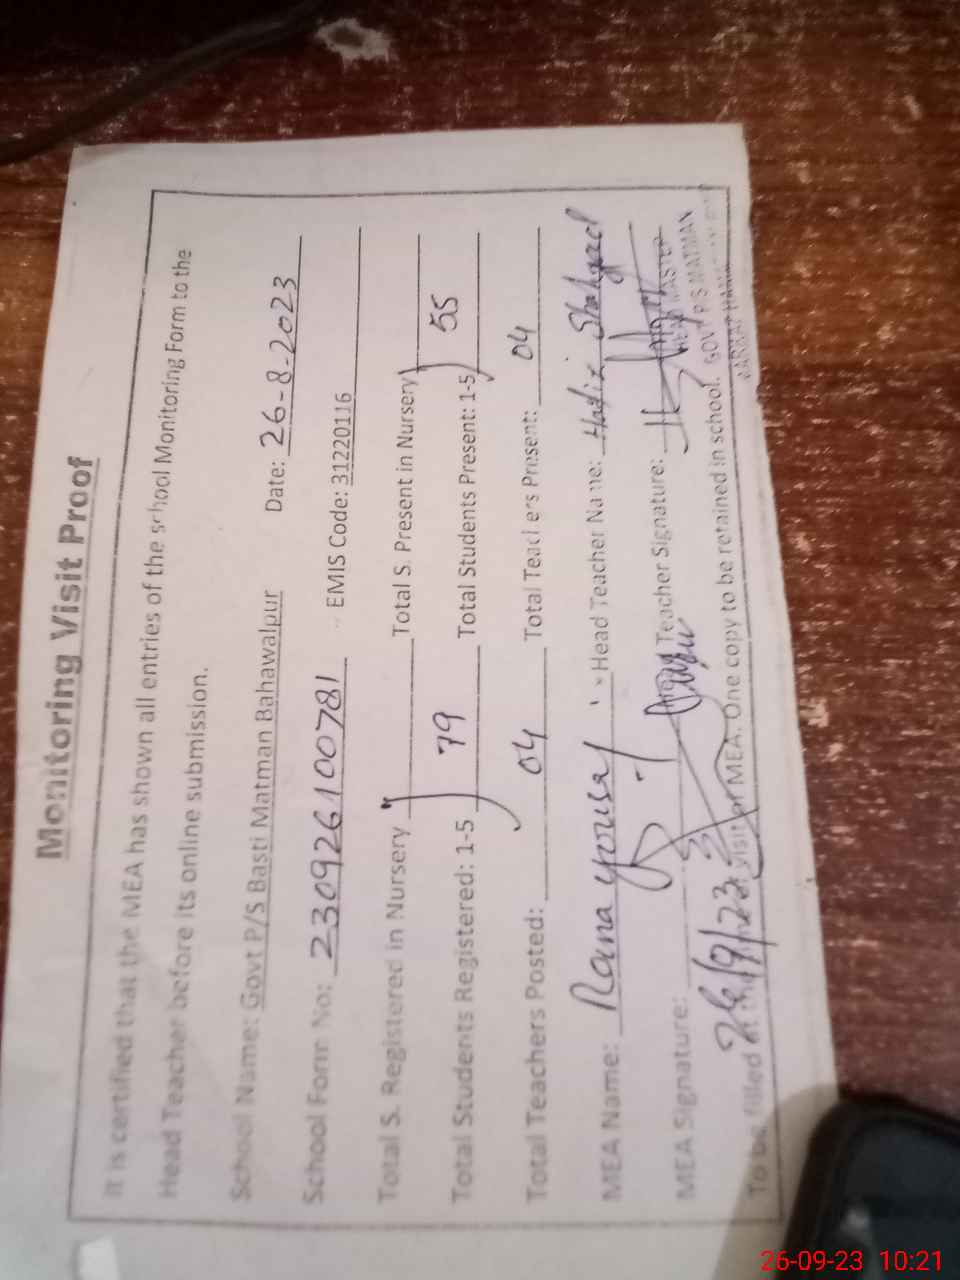 Monitoring Visit Proof
It is certified that the MEA has shown all entries of the school Monitoring Form to the
Head Teacher before its online submission.
School Name: Govt P/S Basti Matman Bahawalpur Date: 26-8-2023
School Form No: 23092610078 1 EMIS Code: 31220116
Total S. Registered in Nursery Total S. Present in Nursery
Total Students Registered: 1-5 79 Total Students Present: 1-5 55
Total Teachers Posted: 04 Total Teachers Present: 04
MEA Name: Rana Yousaf Head Teacher Name: Hafiz Shahzad
MEA Signature: Teacher Signature:
26/9/23
HEAD MASTER
GOVT P S MATMAN
To be filled at the visit MEA. One copy to be retained in school.
26-09-23 10:21